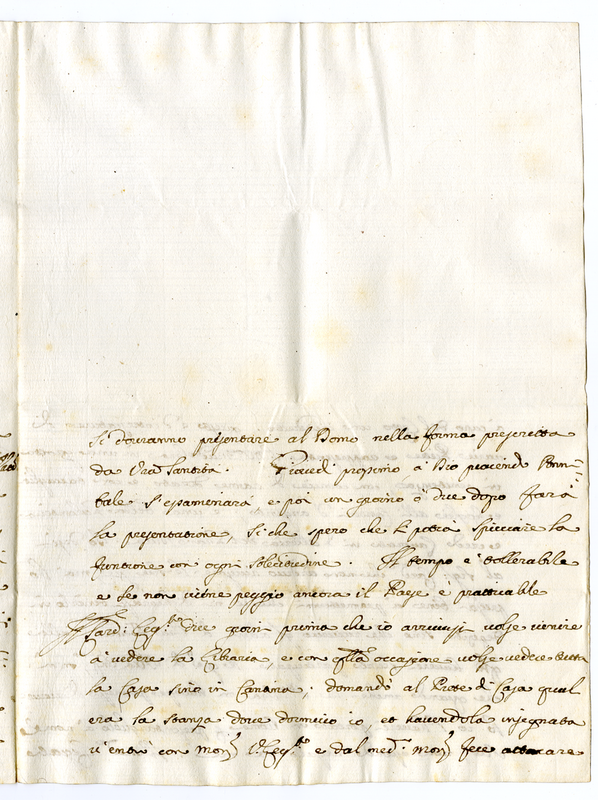 si douranno presentare al Domo nella forma prescritta
da Vra Santità. Giovedì prossimo à Dio piacendo
tale s'esaminarà, e poi un giorno ò due dopo farà
la presentatione, si che spero che si potrà spicciare la
funtione con ogni sollecitudine. Il tempo è tollerabile
e se non viene peggio ancora il Paese è pratticabile
Il Sard: Leg.to dice giorni prima che io arrivassi volse venire
à vedere la Libraria, e con qsta occasione volse vedere tutta
la Casa sino in Cantina; domandò al Prete di Casa qual
era la stanza dove dormivo io, et havendola insegnata
v'entrò con Mons. V. Leg.to e dal med.o Mons. fece attaccare